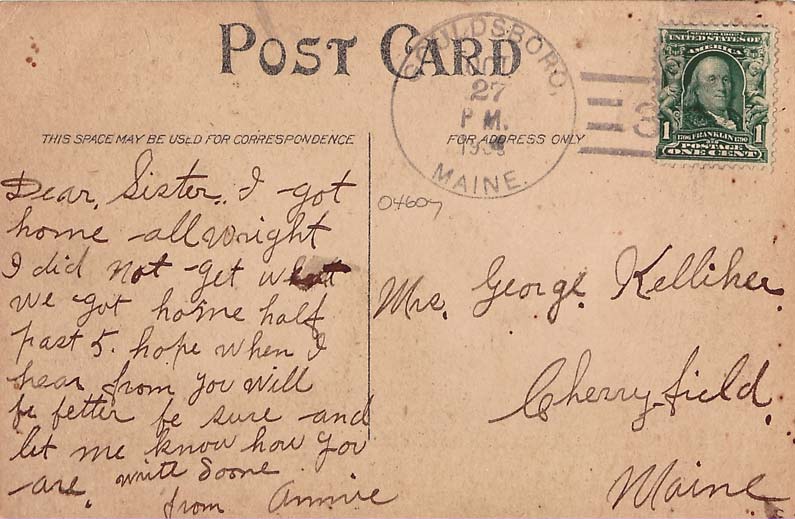 POST CARD
GOULDSBORO,
27
P.M.
MAINE.
3
SERIES 1902
UNITED STATES OF
AMERICA
1 FRANKLIN 1
POSTAGE
ONE CENT
THIS SPACE MAY BE USED FOR CORRESPONDENCE
FOR ADDRESS ONLY
04607
Dear, Sister, I got
home all wright
I did not get wett
we got home half
past 5. hope when I
hear from you will
be better be sure and
let me know how you
are. write Soone
from Annie
Mrs. George Kelliher
Cherryfield,
Maine